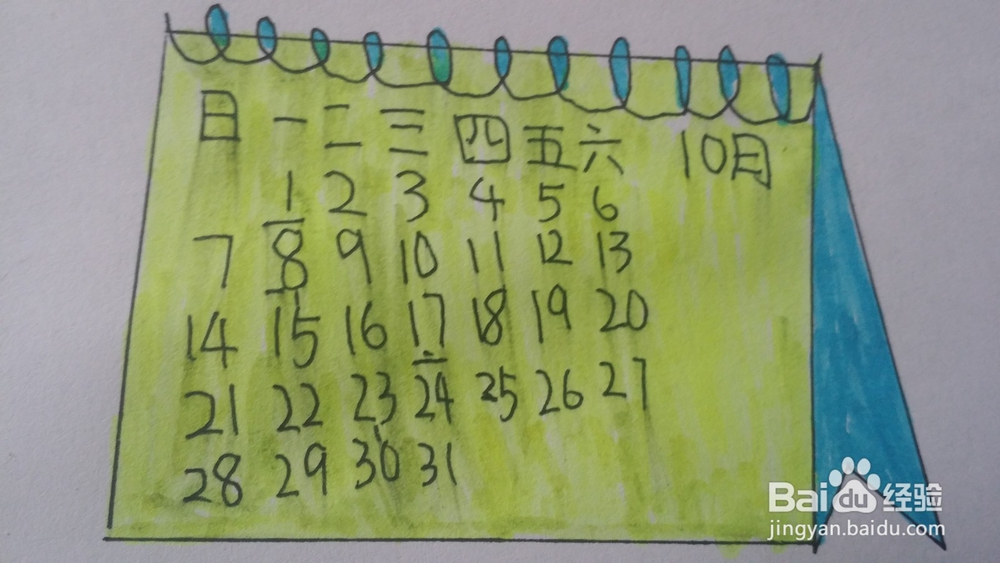 日 一 二 三 四 五 六 10月
1 2 3 4 5 6
7 8 9 10 11 12 13
14 15 16 17 18 19 20
21 22 23 24 25 26 27
28 29 30 31
Baidu经验
jingyan.baidu.com